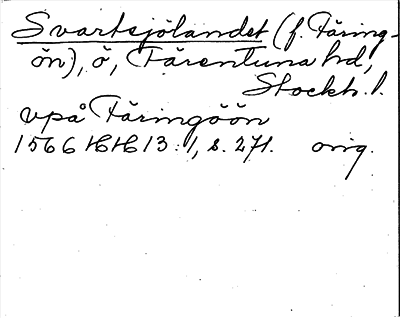 Svartsjölandet (f. Färing-
ön), ö, Färentuna hd,
Stockh. l.
vpå Färingöön
1566 HH 13:1, s. 271. orig.